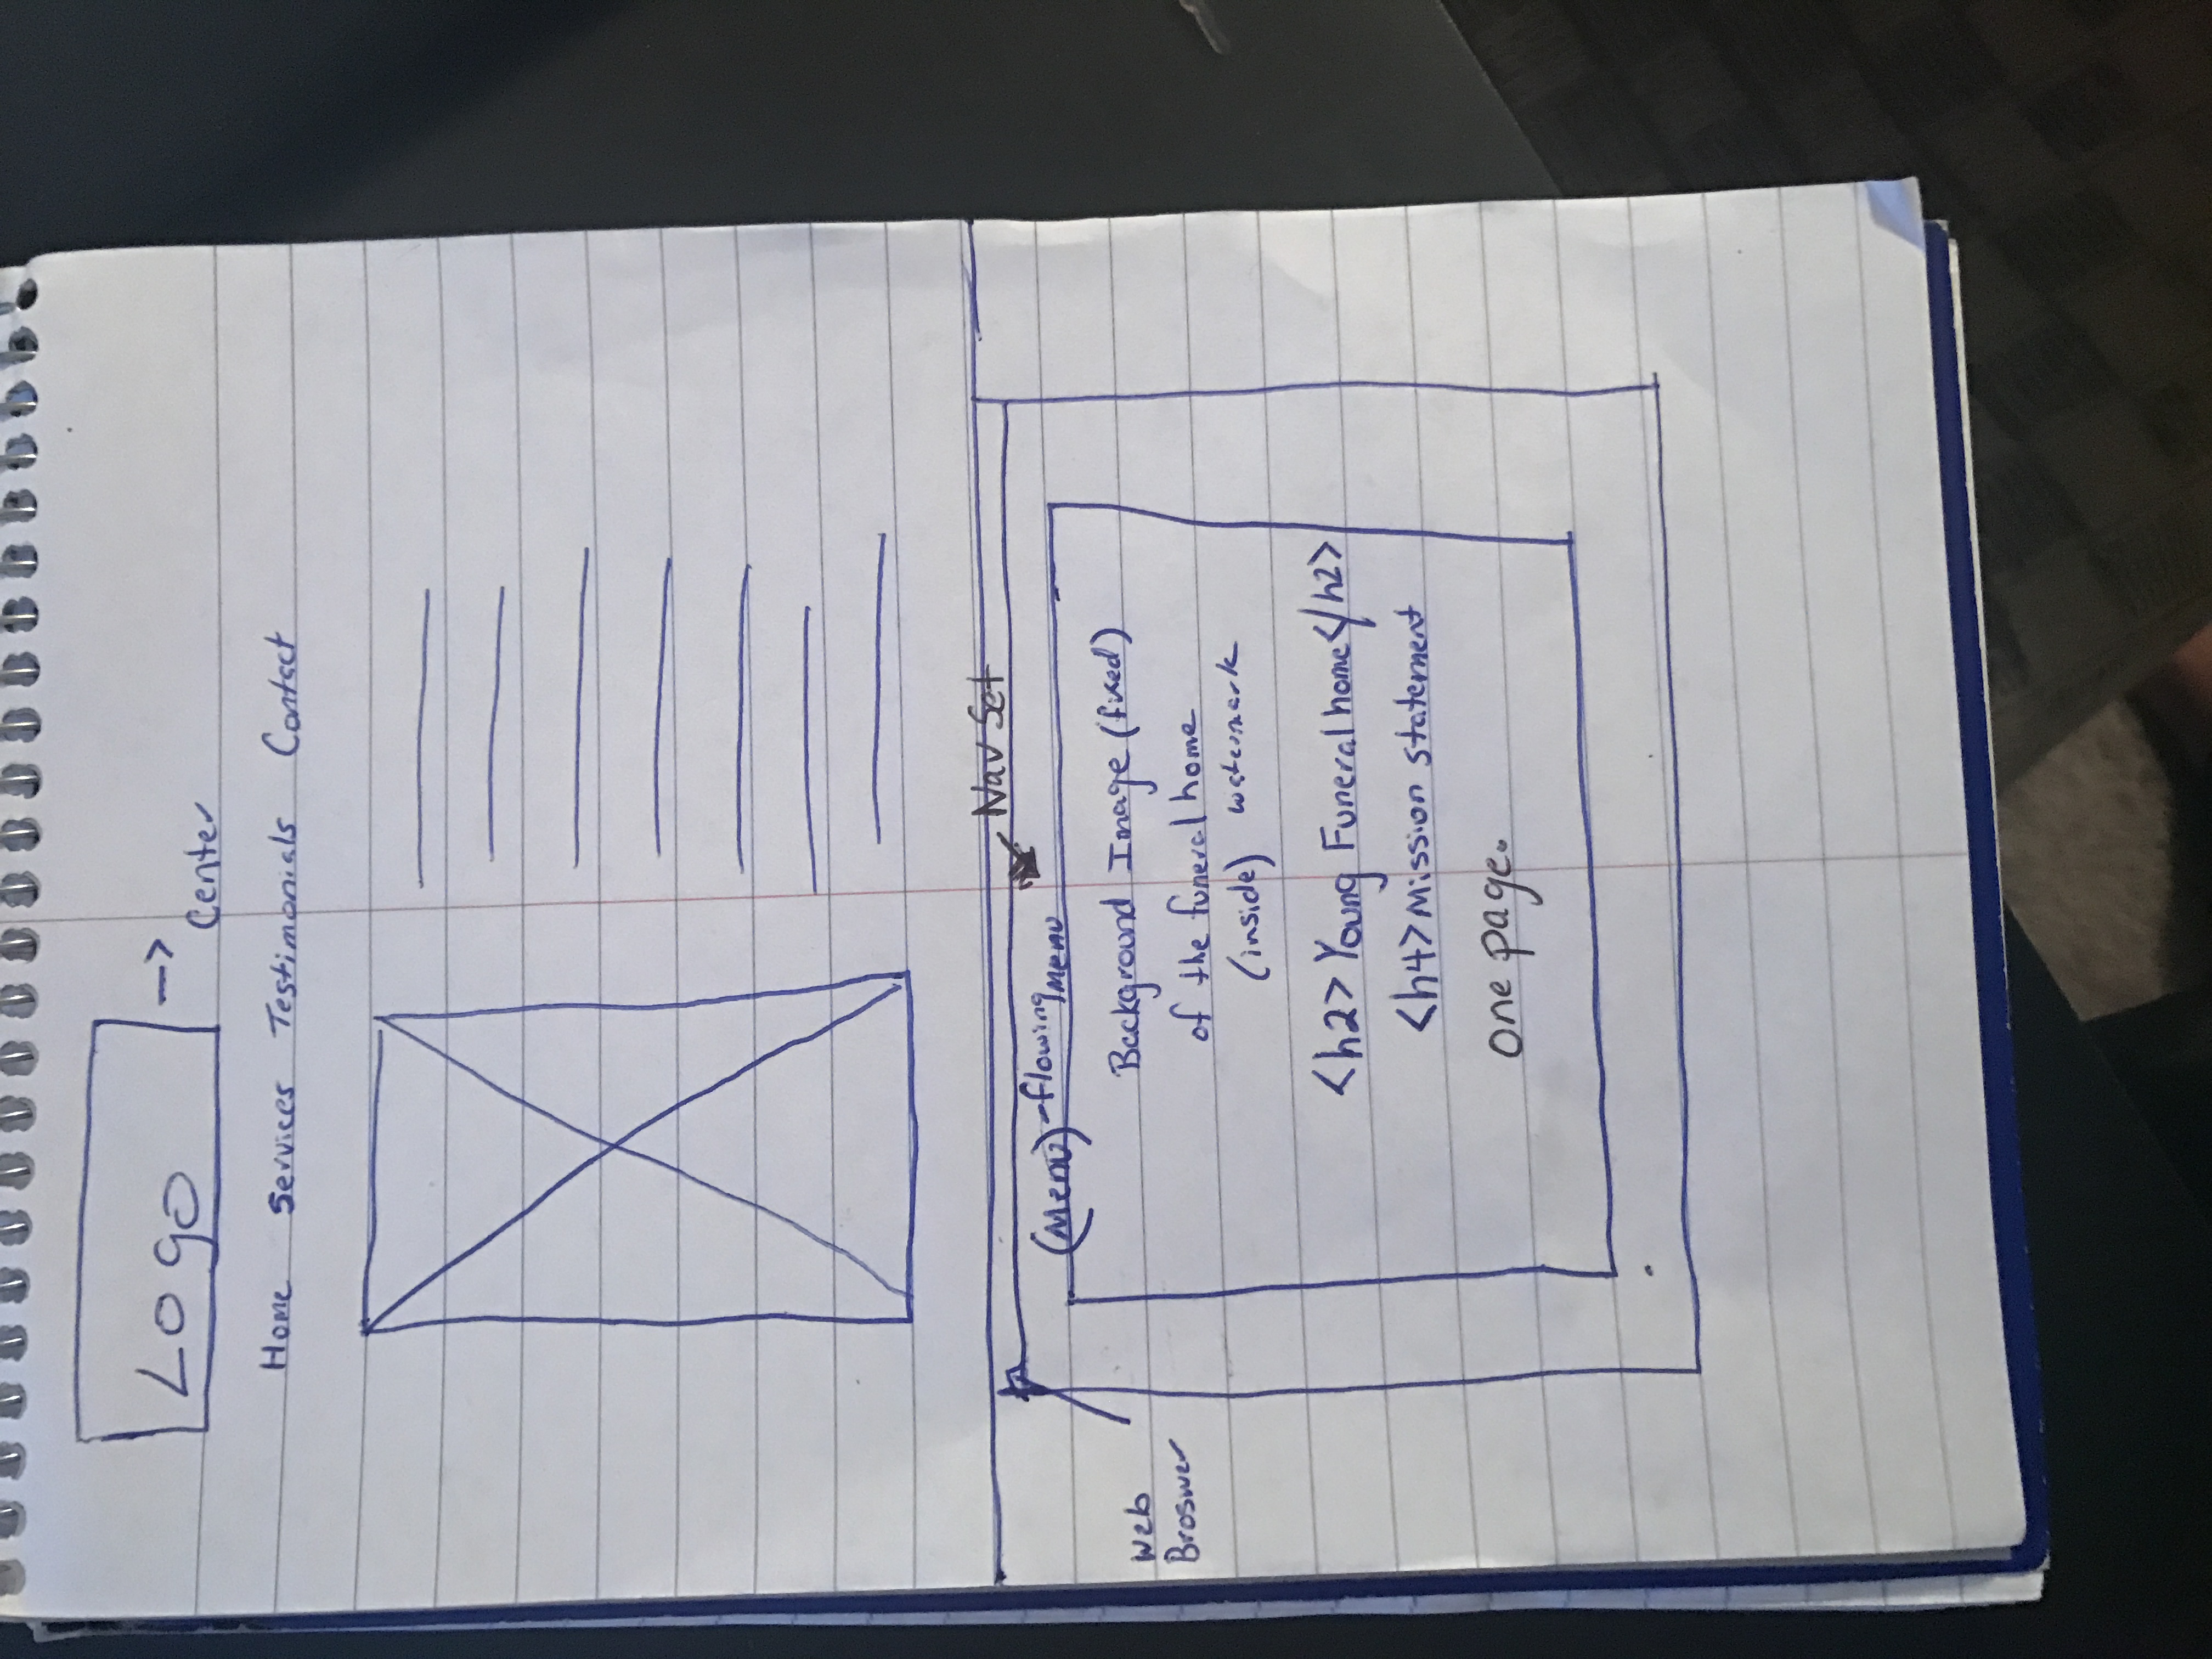 Logo
-> Center
Home Services Testimonials Contact
Nav Set
(Menu) - flowing menu
Web
Broswer
Background Image (fixed)
of the funeral home
(inside) watermark
<h2> Young Funeral home </h2>
<h4> Mission statement
one page.